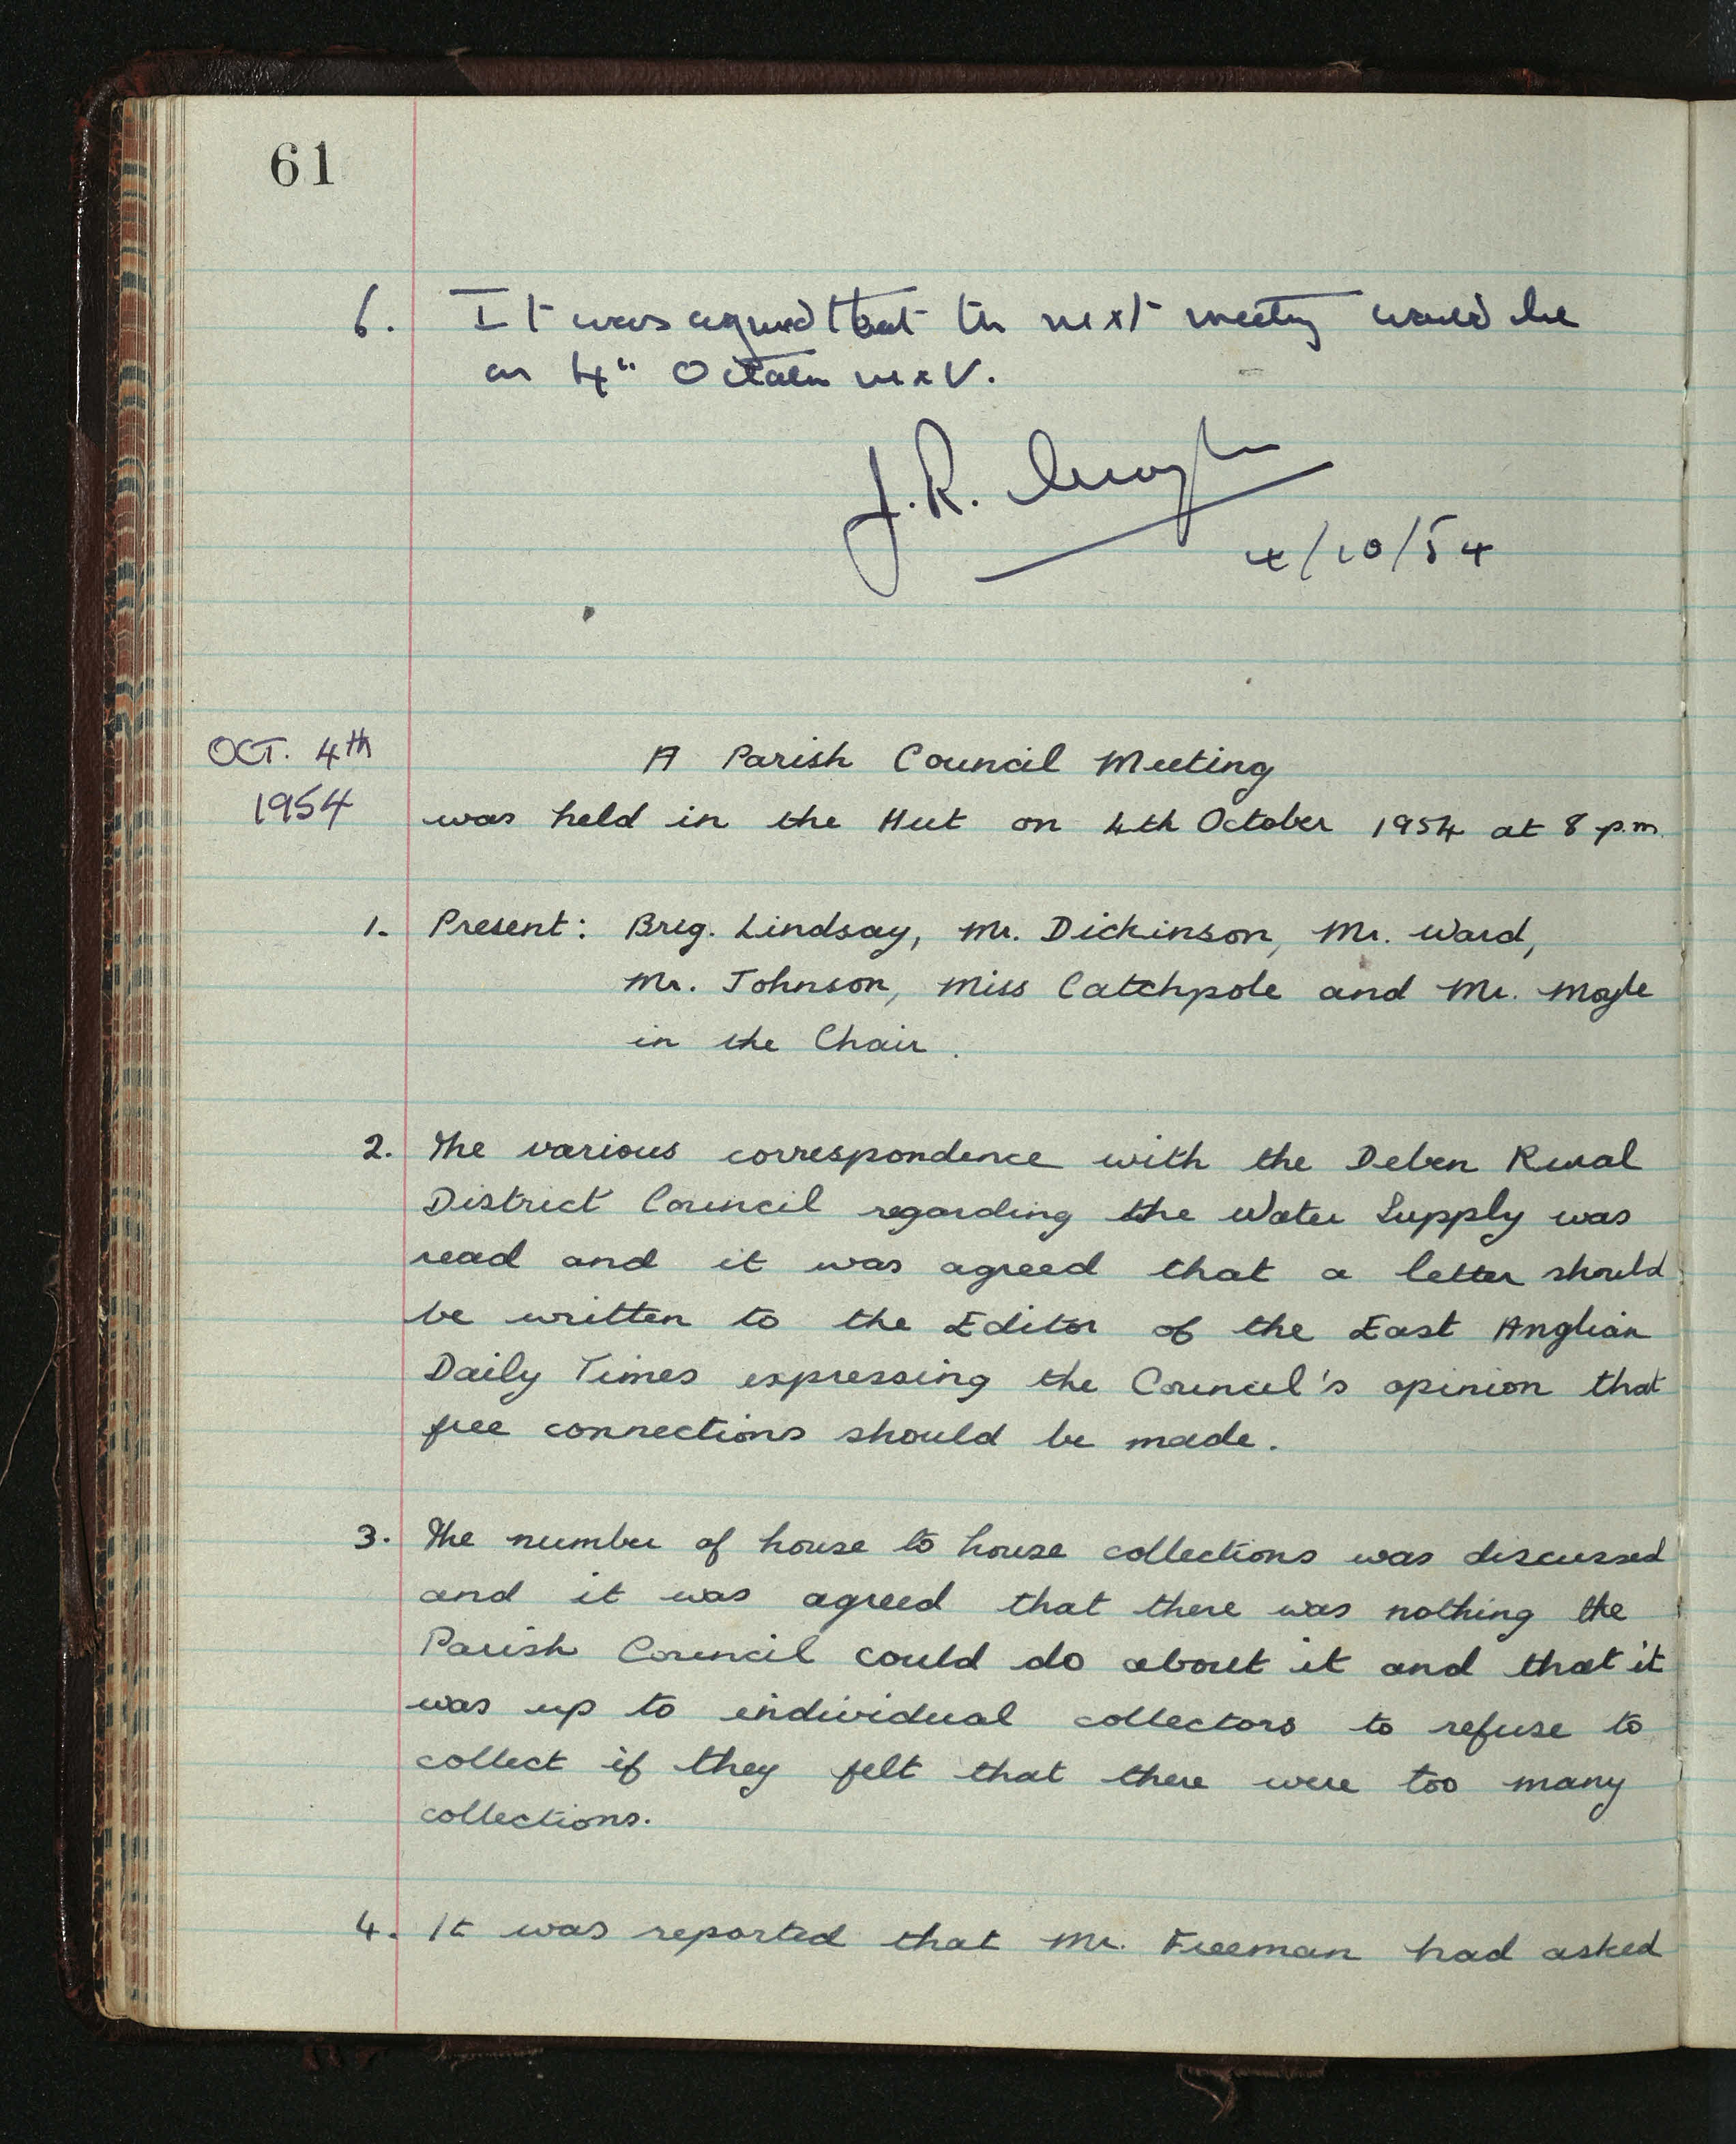 61
6. It was agreed that the next meeting would be
on 4" October next.
J.R. Moyle
4/10/54
OCT. 4th
1954
A Parish Council Meeting
was held in the Hut on 4th October 1954 at 8 p.m.
1. Present: Brig. Lindsay, Mr. Dickinson, Mr. Ward,
Mr. Johnson, Miss Catchpole and Mr. Moyle
in the Chair.
2. The various correspondence with the Deben Rural
District Council regarding the Water Supply was
read and it was agreed that a letter should
be written to the Editor of the East Anglian
Daily Times expressing the Council's opinion that
free connections should be made.
3. The number of house to house collections was discussed
and it was agreed that there was nothing the
Parish Council could do about it and that it
was up to individual collectors to refuse to
collect if they felt that there were too many
collections.
4. It was reported that Mr. Freeman had asked